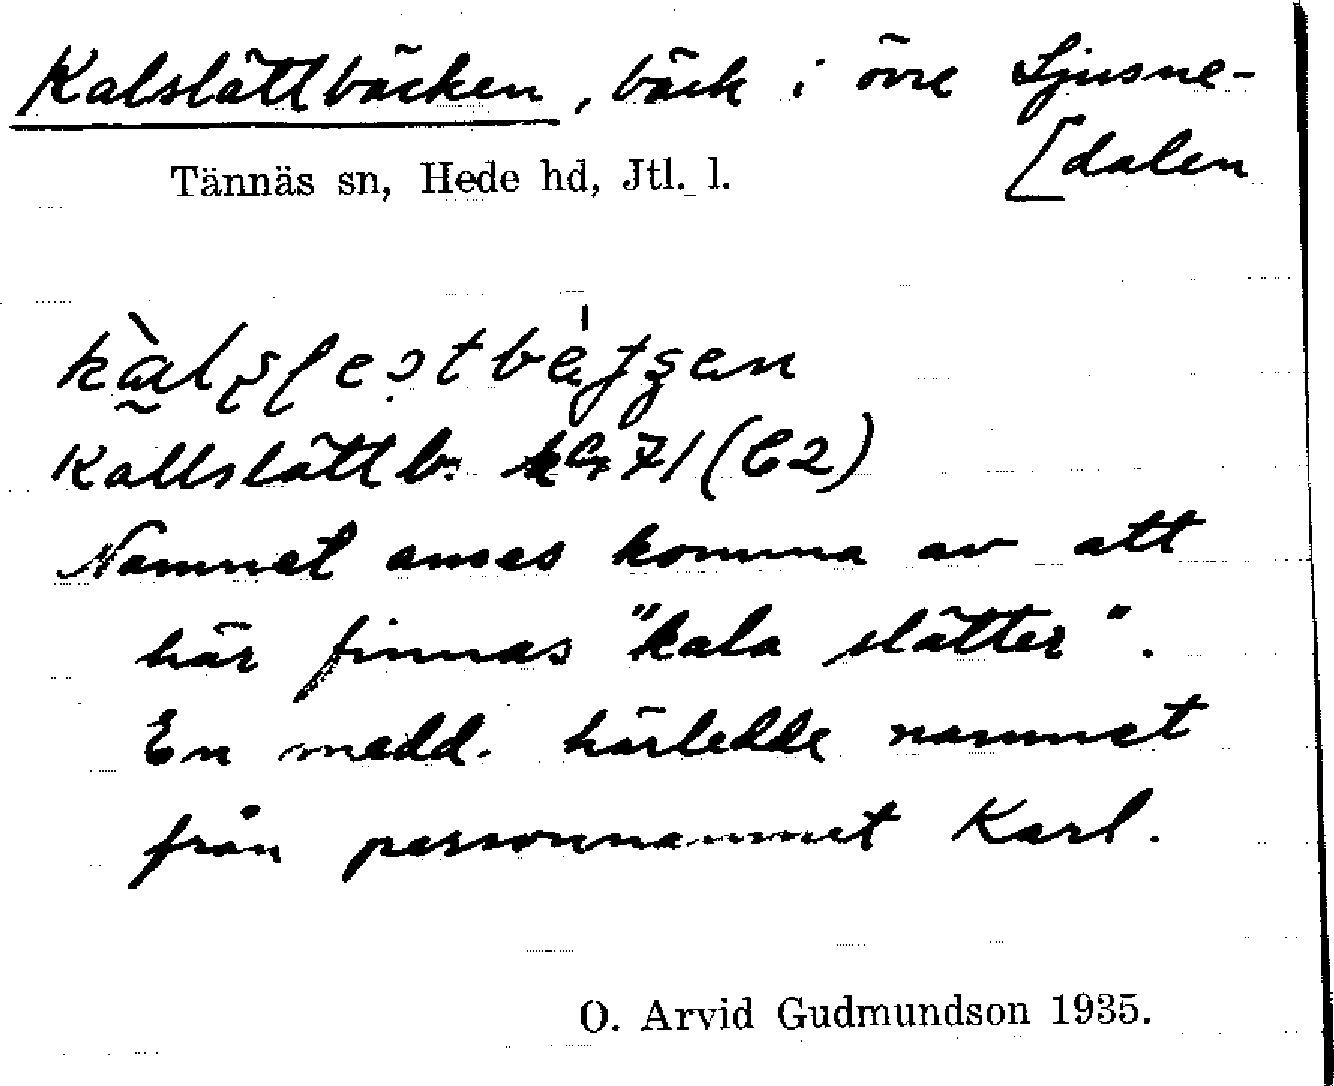 Kalslättbäcken, bäck i övre Ljusne-
[dalen
Tännäs sn, Hede hd, Jtl. l.
Kallslättb. 71 (C2)
Namnet anses komma av att
här finnas "kala slätter".
En medd. härledde namnet
från personnamnet Karl.
O. Arvid Gudmundson 1935.